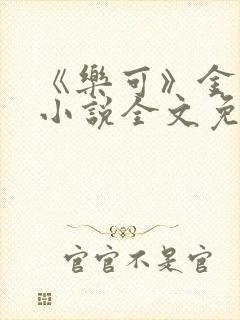 《樂可》金
小說全文免
官官不是官